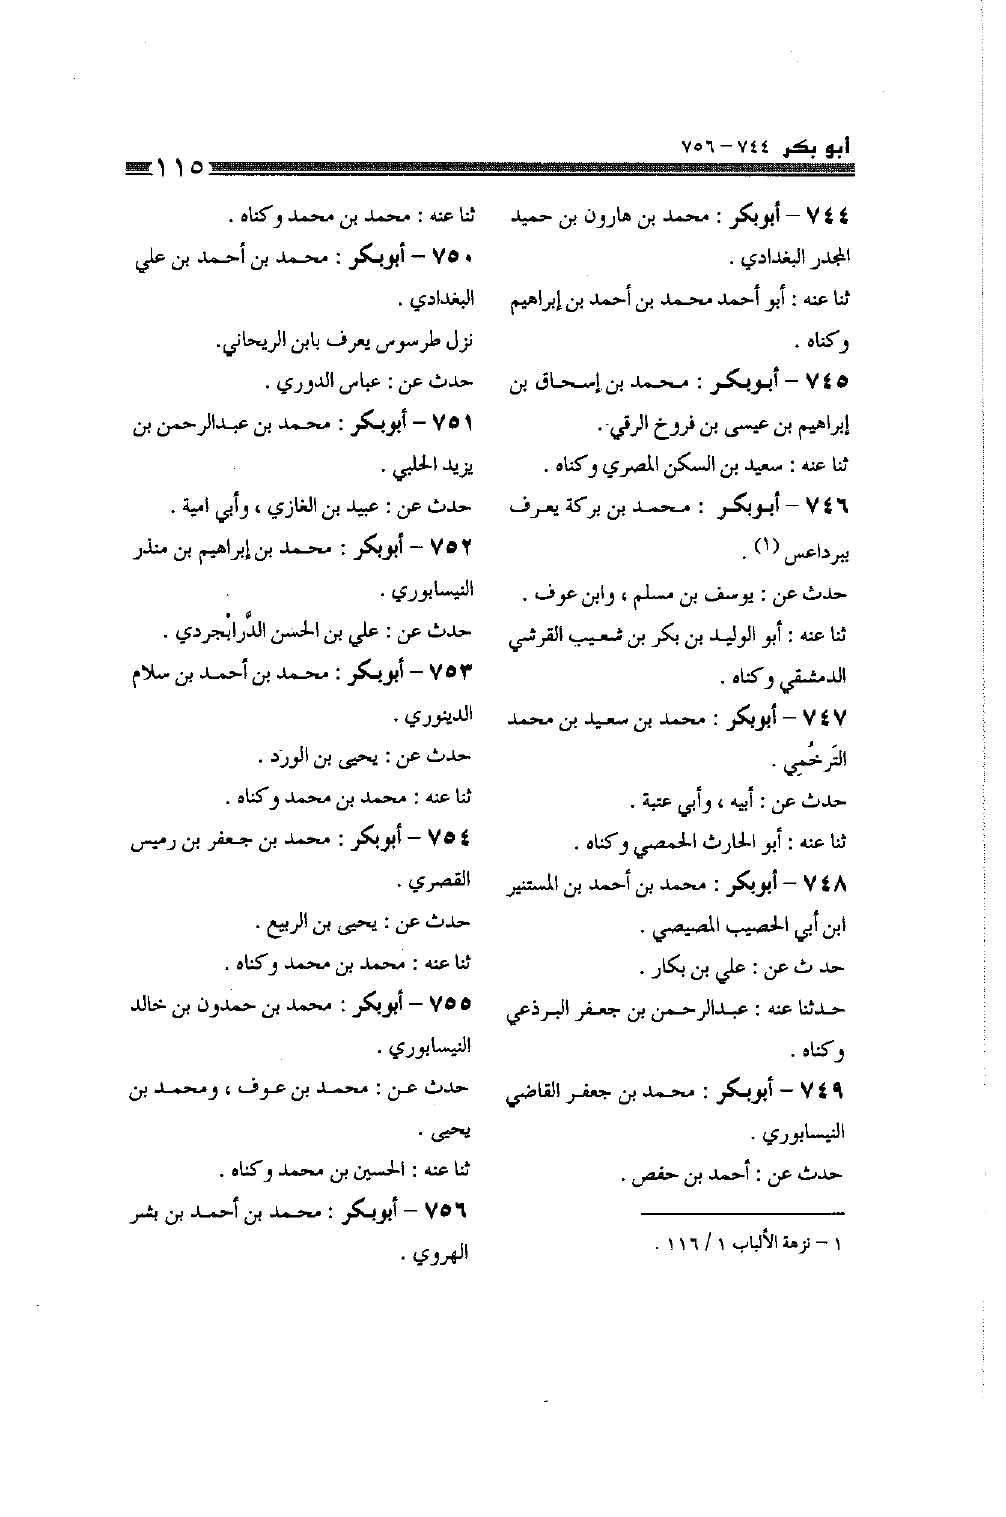 أبو بكر ٧٤٤ – ٧٥٦
١١٥
٧٤٤ – أبوبكر : محمد بن هارون بن حميد
المجدر البغدادي .
ثنا عنه : أبو أحمد محمد بن أحمد بن إبراهيم
وكناه .
٧٤٥ – أبوبكر : محمد بن إسحاق بن
إبراهيم بن عيسى بن فروخ الرقي .
ثنا عنه : سعيد بن السكن المصري وكناه .
٧٤٦ – أبوبكر : محمد بن بركة يعرف
ببرداعس (١) .
حدث عن : يوسف بن مسلم ، وابن عوف .
ثنا عنه : أبو الوليد بن بكر بن شعيب القرشي
الدمشقي وكناه .
٧٤٧ – أبوبكر : محمد بن سعيد بن محمد
التَرخُمِي .
حدث عن : أبيه ، وأبي عتبة .
ثنا عنه : أبو الحارث الحمصي وكناه .
٧٤٨ – أبوبكر : محمد بن أحمد بن المستنير
ابن أبي الحصيب المصيصي .
حدث عن : علي بن بكار .
حدثنا عنه : عبدالرحمن بن جعفر البرذعي
وكناه .
٧٤٩ – أبوبكر : محمد بن جعفر القاضي
النيسابوري .
حدث عن : أحمد بن حفص .
١ – نزهة الألباب ١ / ١١٦ .
ثنا عنه : محمد بن محمد وكناه .
٧٥٠ – أبوبكر : محمد بن أحمد بن علي
البغدادي .
نزل طرسوس يعرف بابن الريحاني.
حدث عن : عباس الدوري .
٧٥١ – أبوبكر : محمد بن عبدالرحمن بن
يزيد الحلبي .
حدث عن : عبيد بن الغازي ، وأبي امية .
٧٥٢ – أبوبكر : محمد بن إبراهيم بن منذر
النيسابوري .
حدث عن : علي بن الحسن الدَّرابْجردي .
٧٥٣ – أبوبكر : محمد بن أحمد بن سلام
الدينوري .
حدث عن : يحيى بن الورد .
ثنا عنه : محمد بن محمد وكناه .
٧٥٤ – أبوبكر : محمد بن جعفر بن رميس
القصري .
حدث عن : يحيى بن الربيع .
ثنا عنه : محمد بن محمد وكناه .
٧٥٥ – أبوبكر : محمد بن حمدون بن خالد
النيسابوري .
حدث عن : محمد بن عوف ، ومحمد بن
يحيى .
ثنا عنه : الحسين بن محمد وكناه .
٧٥٦ – أبوبكر : محمد بن أحمد بن بشر
الهروي .